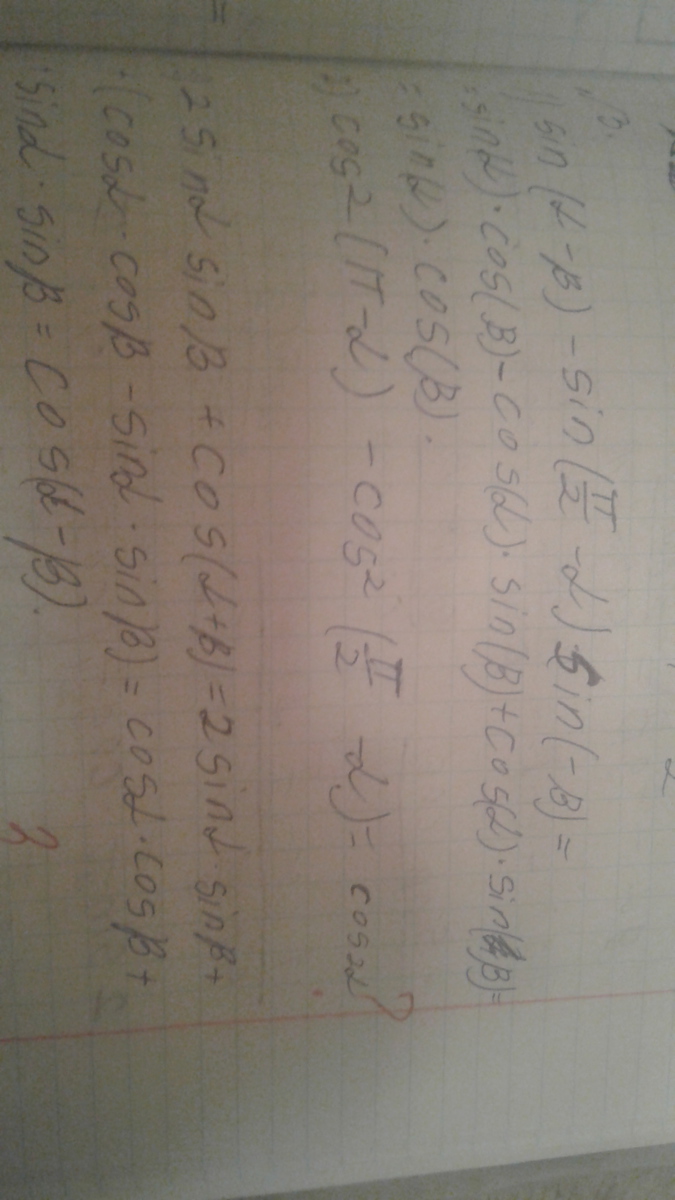 √3.
1) sin(α-β) - sin(π/2 - α) sin(-β) =
= sin(α)·cos(β) - cos(α)·sin(β) + cos(α)·sin(β) =
= sin(α)·cos(β).
2) cos² (π-α) - cos² (π/2 - α) = cos2α ?
2 sinα sinβ + cos(α+β) = 2 sinα sinβ +
+ (cosα·cosβ - sinα·sinβ) = cosα·cosβ +
sinα·sinβ = cos(α-β). ?